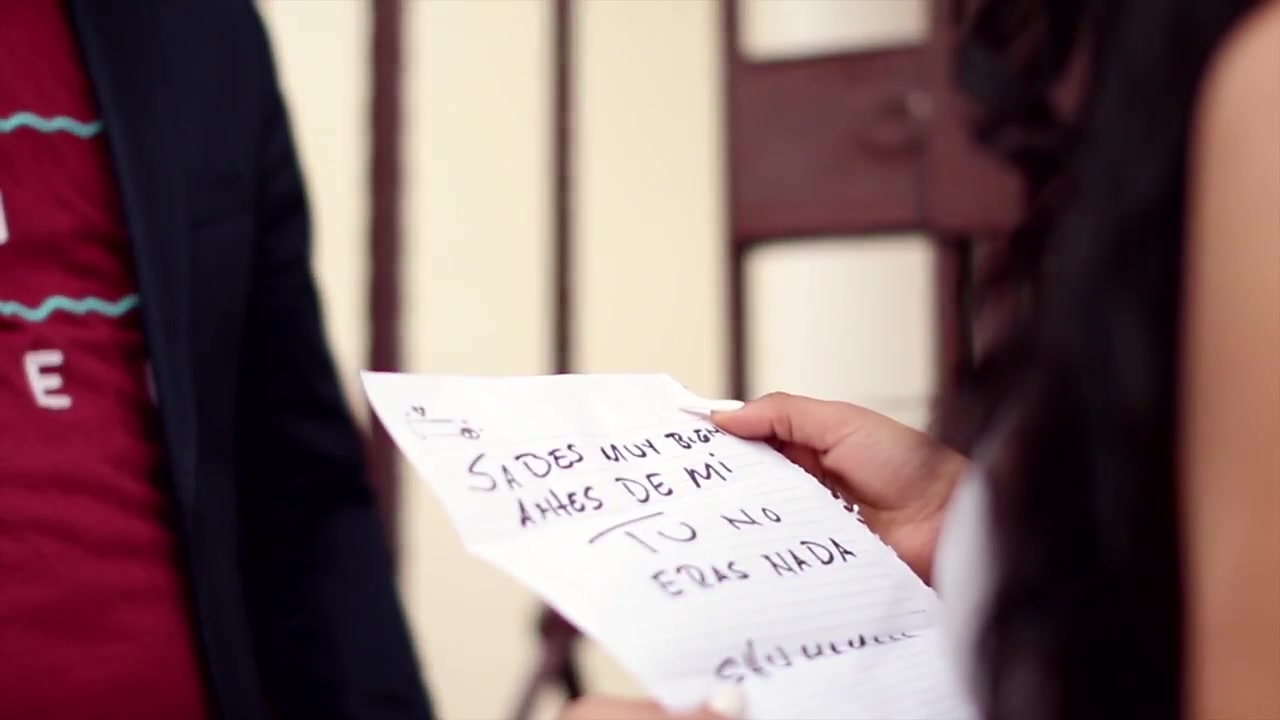 E
SABES MUY BIEN
ANTES DE Mi
TU NO
ERAS NADA